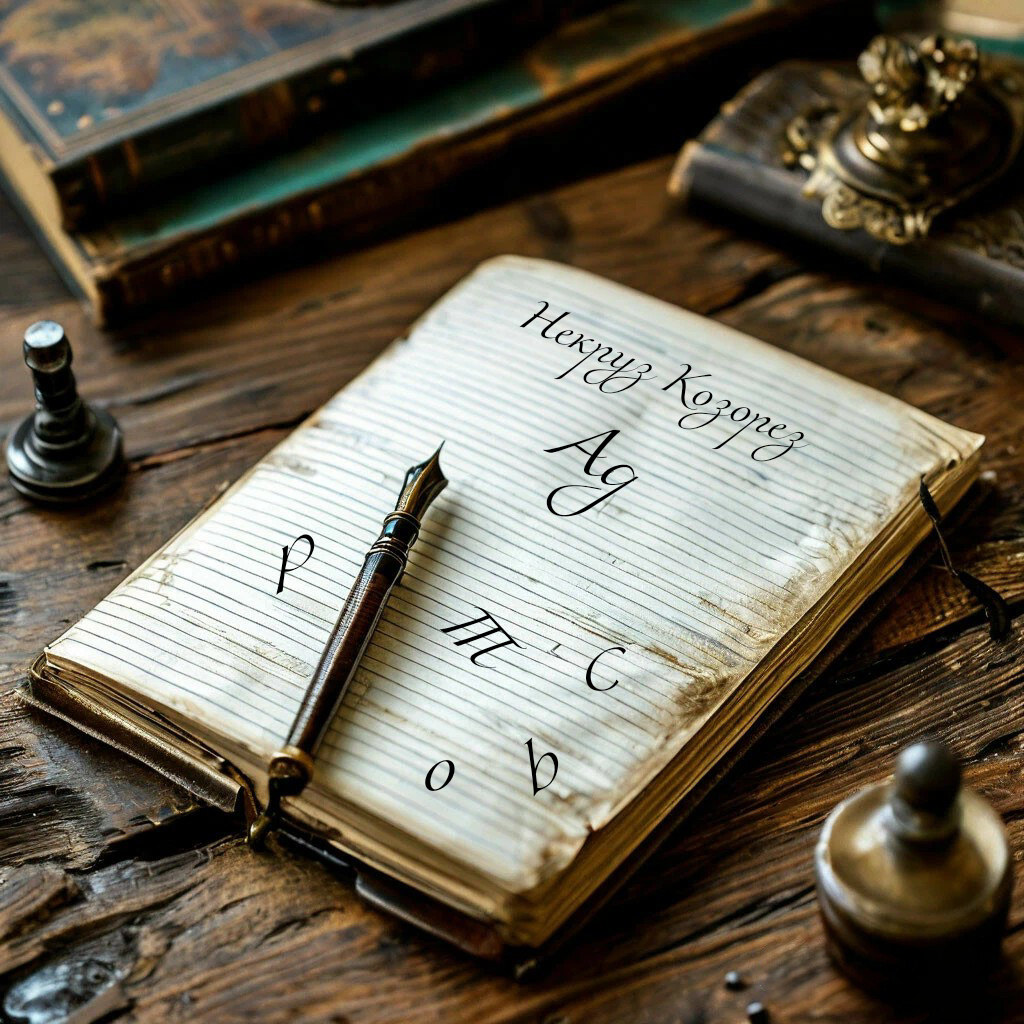 Некруз Козорез
Ад
р
т с
о ь